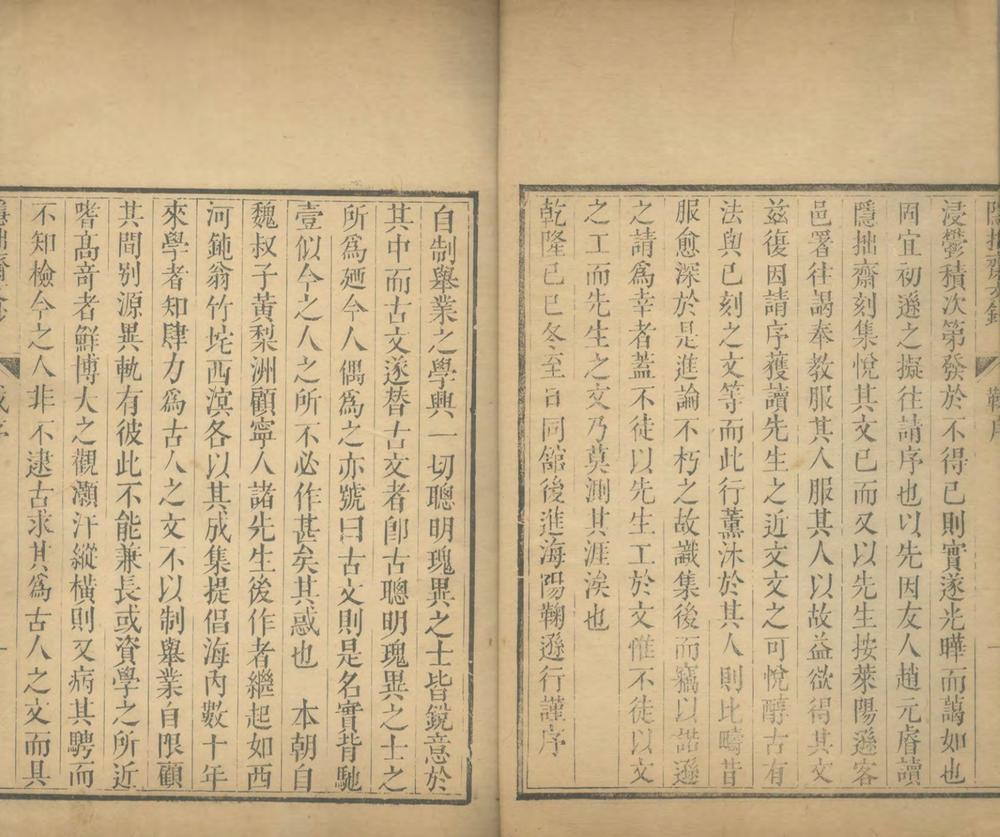 隱拙齋文鈔
鞠序
一
浸鬱積次第發於不得已則實遂光曄而藹如也
固宜初遜之擬往請序也以先因友人趙元睿讀
隱拙齋刻集悅其文已而又以先生按萊陽遜客
邑署往謁奉教服其人服其人以故益欲得其文
兹復因請序獲讀先生之近文文之可悅醇古有
法與已刻之文等而此行薰沐於其人則比疇昔
服愈深於是進論不朽之故識集後而竊以諾遜
之請為幸者蓋不徒以先生工於文惟不徒以文
之工而先生之文乃莫測其涯涘也
乾隆己巳冬至日同館後進海陽鞠遜行謹序
自制舉業之學興一切聰明瑰異之士皆銳意於
其中而古文遂替古文者卽古聰明瑰異之士之
所為廼今人偶為之亦號曰古文則是名實背馳
壹似今之人之所不必作甚矣其惑也　本朝自
魏叔子黃梨洲顧寧人諸先生後作者繼起如西
河鈍翁竹垞西溟各以其成集提倡海內數十年
來學者知肆力為古人之文不以制舉業自限顧
其間別源異軌有彼此不能兼長或資學之所近
嗜高竒者鮮博大之觀灝汗縱橫則又病其騁而
不知檢今之人非不逮古求其為古人之文而具
隱拙齋文鈔
序
一